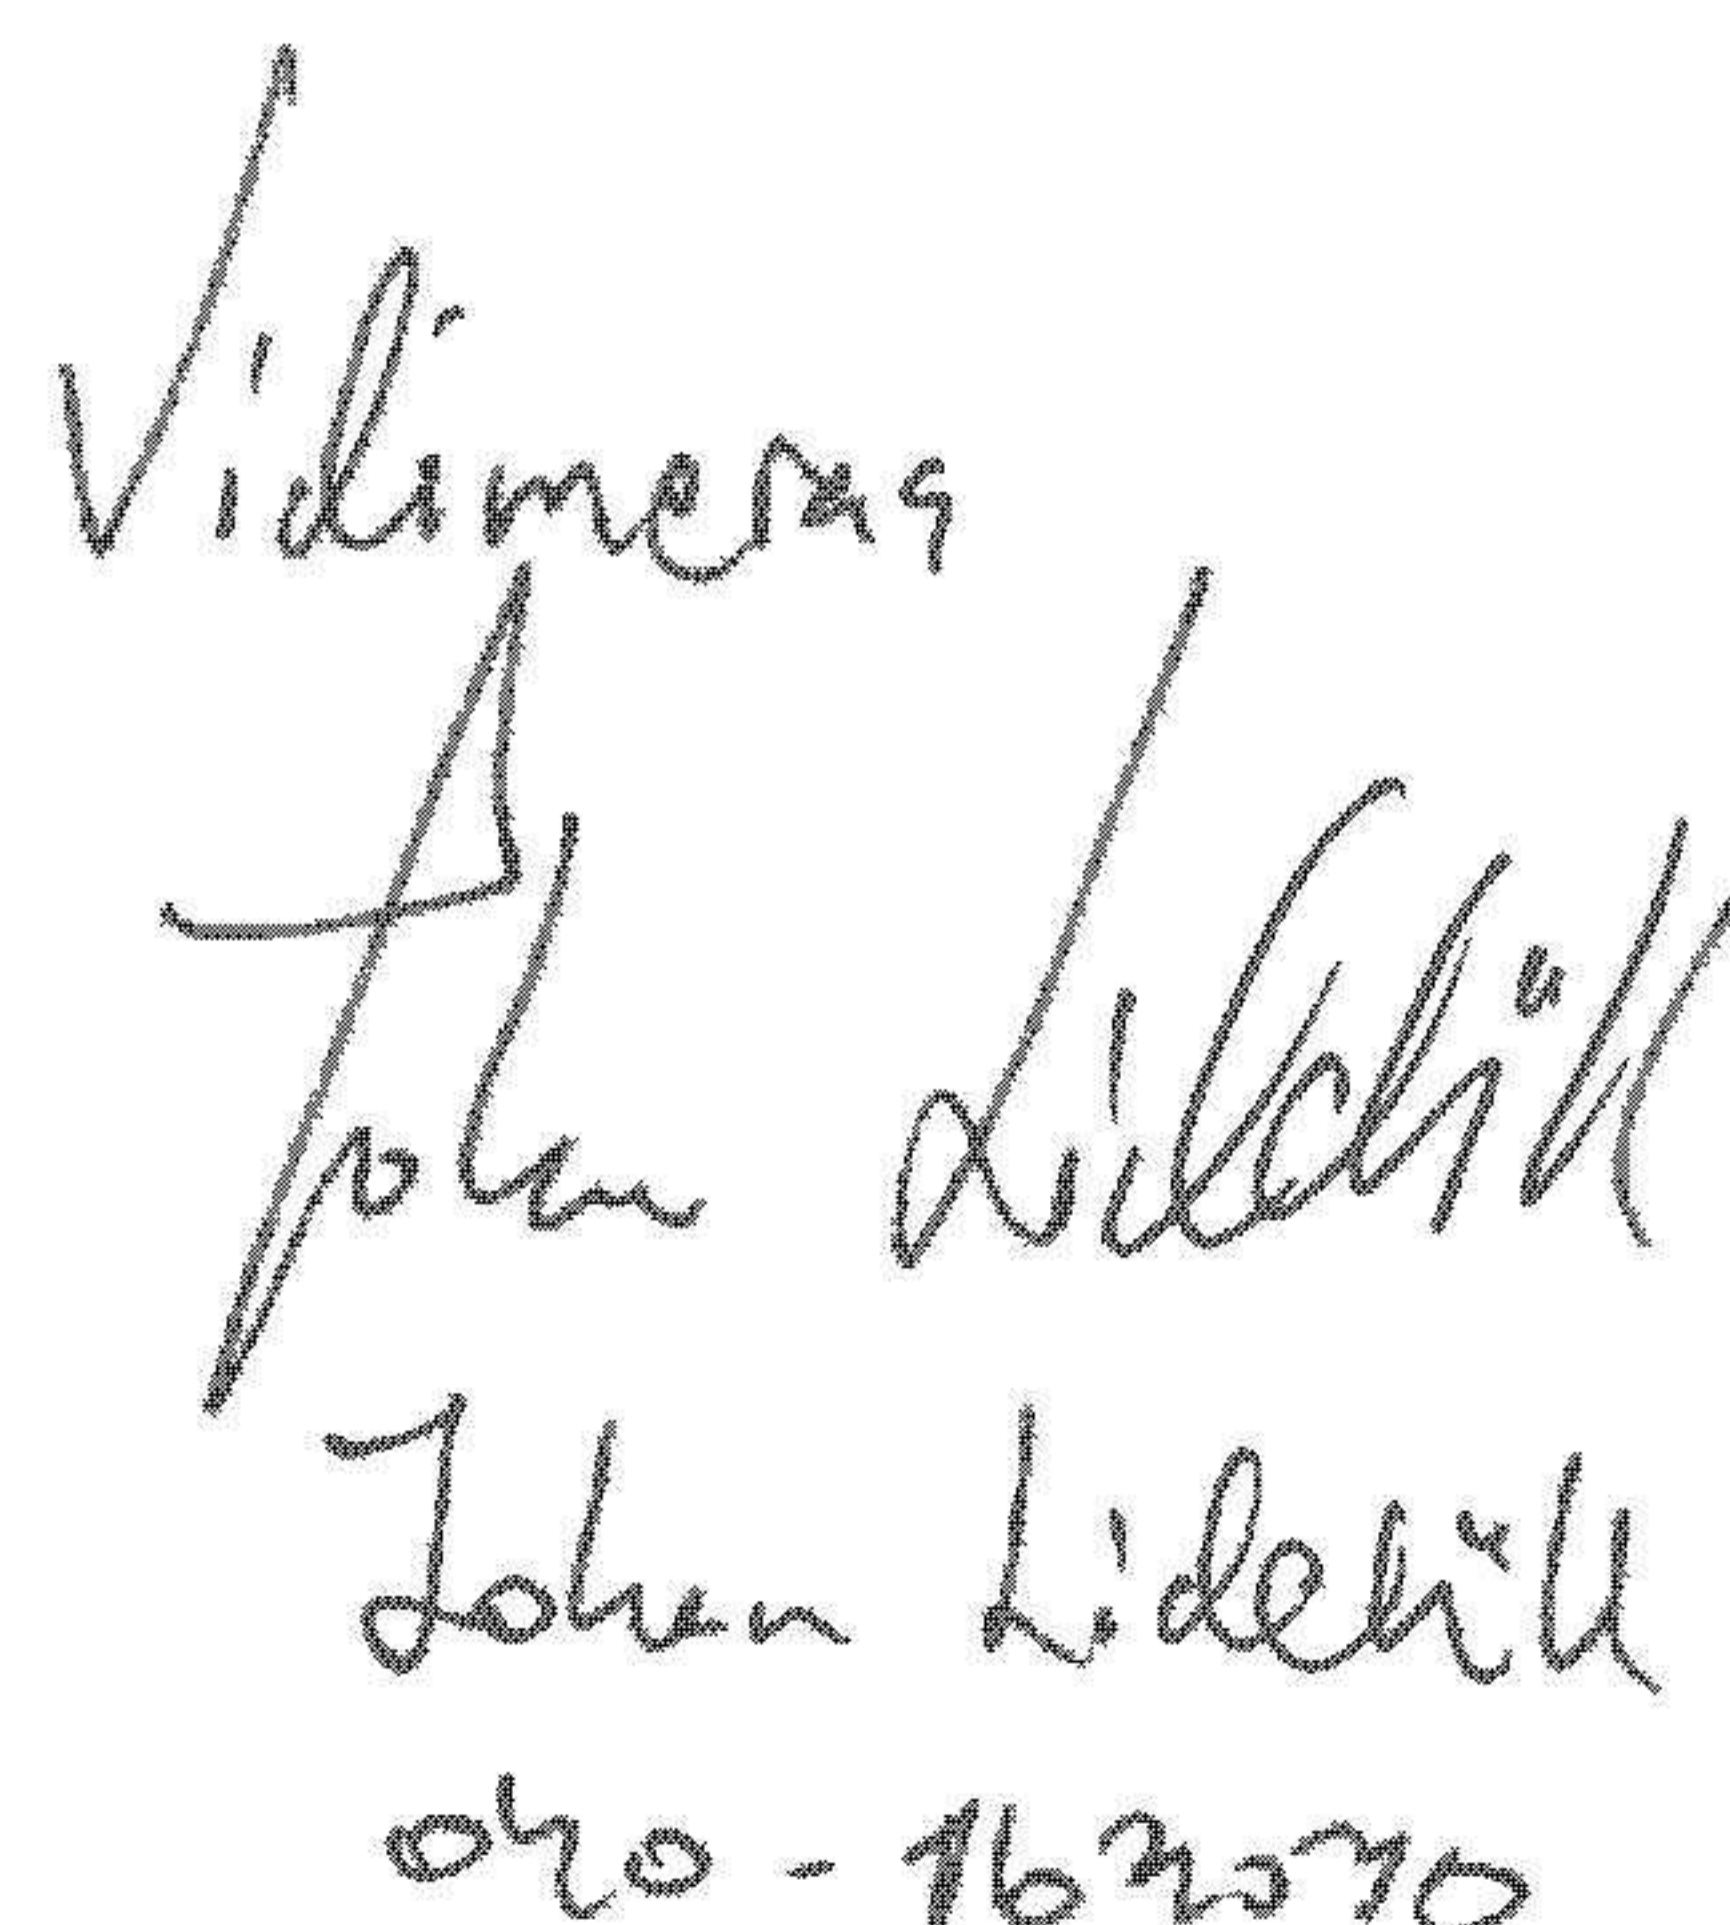 Vidimeras
Johan Lidehäll
Johan Lidehäll
040-163070